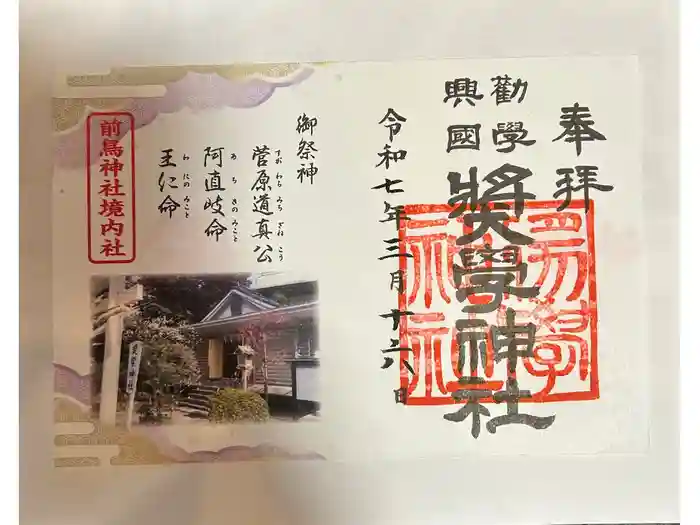 奉拝
勸學
興國
奬學神社
令和七年三月十六日
御祭神
菅原道真公
すがわらみちざねこう
阿直岐命
あちきのみこと
王仁命
わにのみこと
前鳥神社境内社